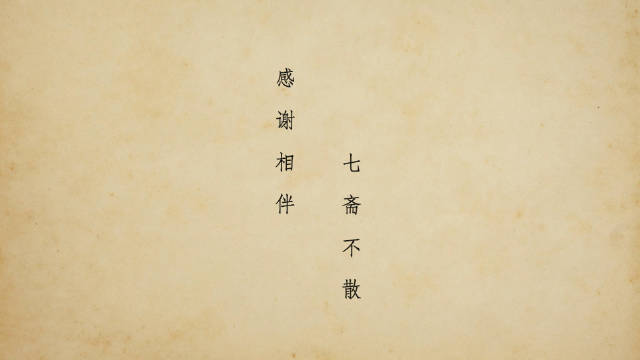 感谢相伴
七斋不散